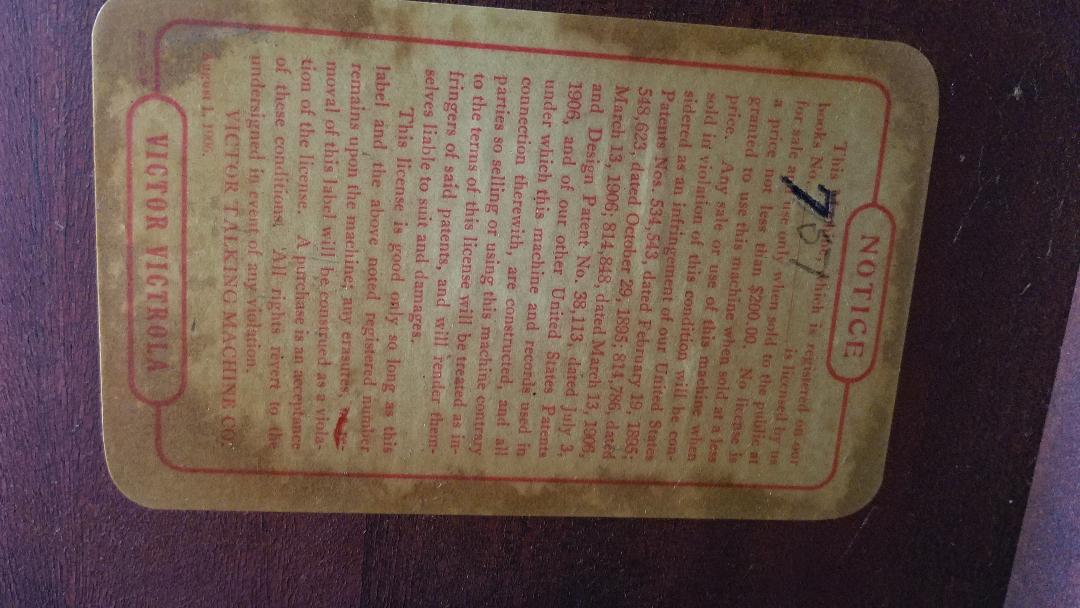 NOTICE
This which is registered on our
books No. 7 is licensed by us
for sale and use only when sold to the public at
a price not less than $200.00. No license is
granted to use this machine when sold at a less
price. Any sale or use of this machine when
sold in violation of this condition will be con-
sidered as an infringement of our United States
Patents Nos. 534,543, dated February 19, 1895;
548,623, dated October 29, 1895; 814,786, dated
March 13, 1906; 814,848, dated March 13, 1906,
and Design Patent No. 38,113, dated July 3,
1906, and of our other United States Patents
under which this machine and records used in
connection therewith, are constructed, and all
parties so selling or using this machine contrary
to the terms of this license will be treated as in-
fringers of said patents, and will render them-
selves liable to suit and damages.
This license is good only so long as this
label and the above noted registered number
remains upon the machine; any erasures, re-
moval of this label will be construed as a viola-
tion of the license. A purchase is an acceptance
of these conditions. All rights revert to the
undersigned in event of any violation.
VICTOR TALKING MACHINE CO.
August 1, 1906.
VICTOR VICTROLA